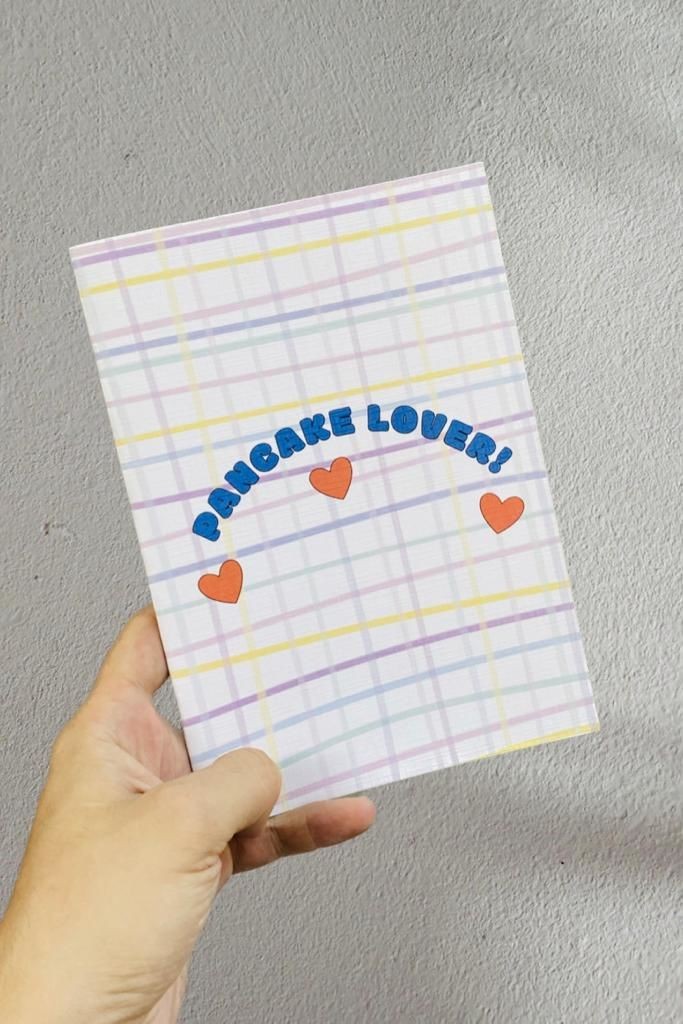 PANCAKE LOVER!